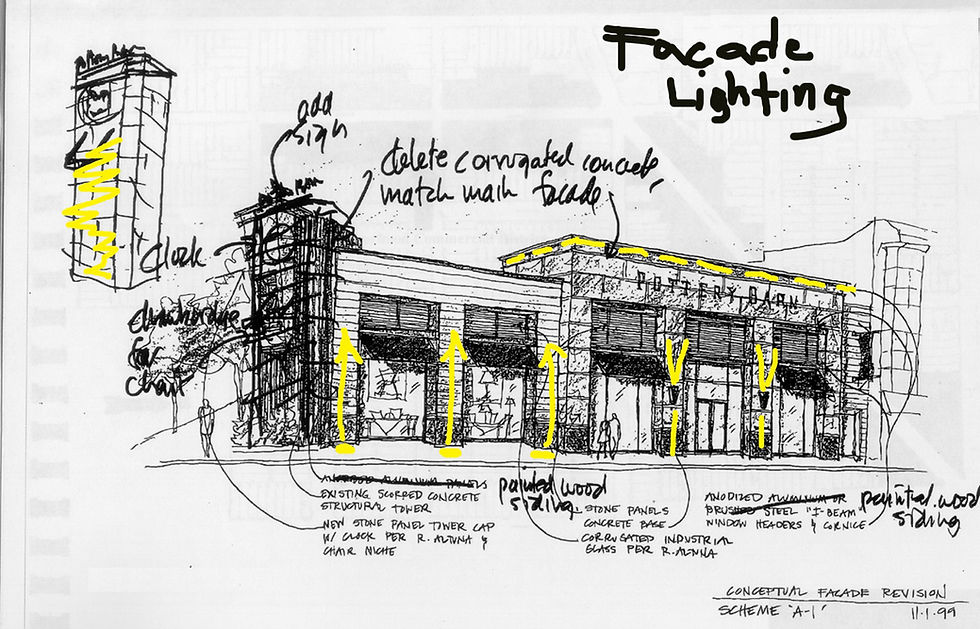 Facade
Lighting
add
sign
delete corrugated concrete,
match main facade
Clock
for
POTTERY BARN
ANODIZED ALUMINUM PANELS
EXISTING SCORED CONCRETE
STRUCTURAL TOWER
NEW STONE PANEL TOWER CAP
W/ CLOCK PER R. ALTUNA &
CHAIR NICHE
painted wood
siding
STONE PANELS
CONCRETE BASE
CORRUGATED INDUSTRIAL
GLASS PER R. ALTUNA
ANODIZED ALUMINUM OR
BRUSHED STEEL "I-BEAM"
WINDOW HEADERS & CORNICE
painted wood
siding
CONCEPTUAL FACADE REVISION
SCHEME "A-1"
11.1.99